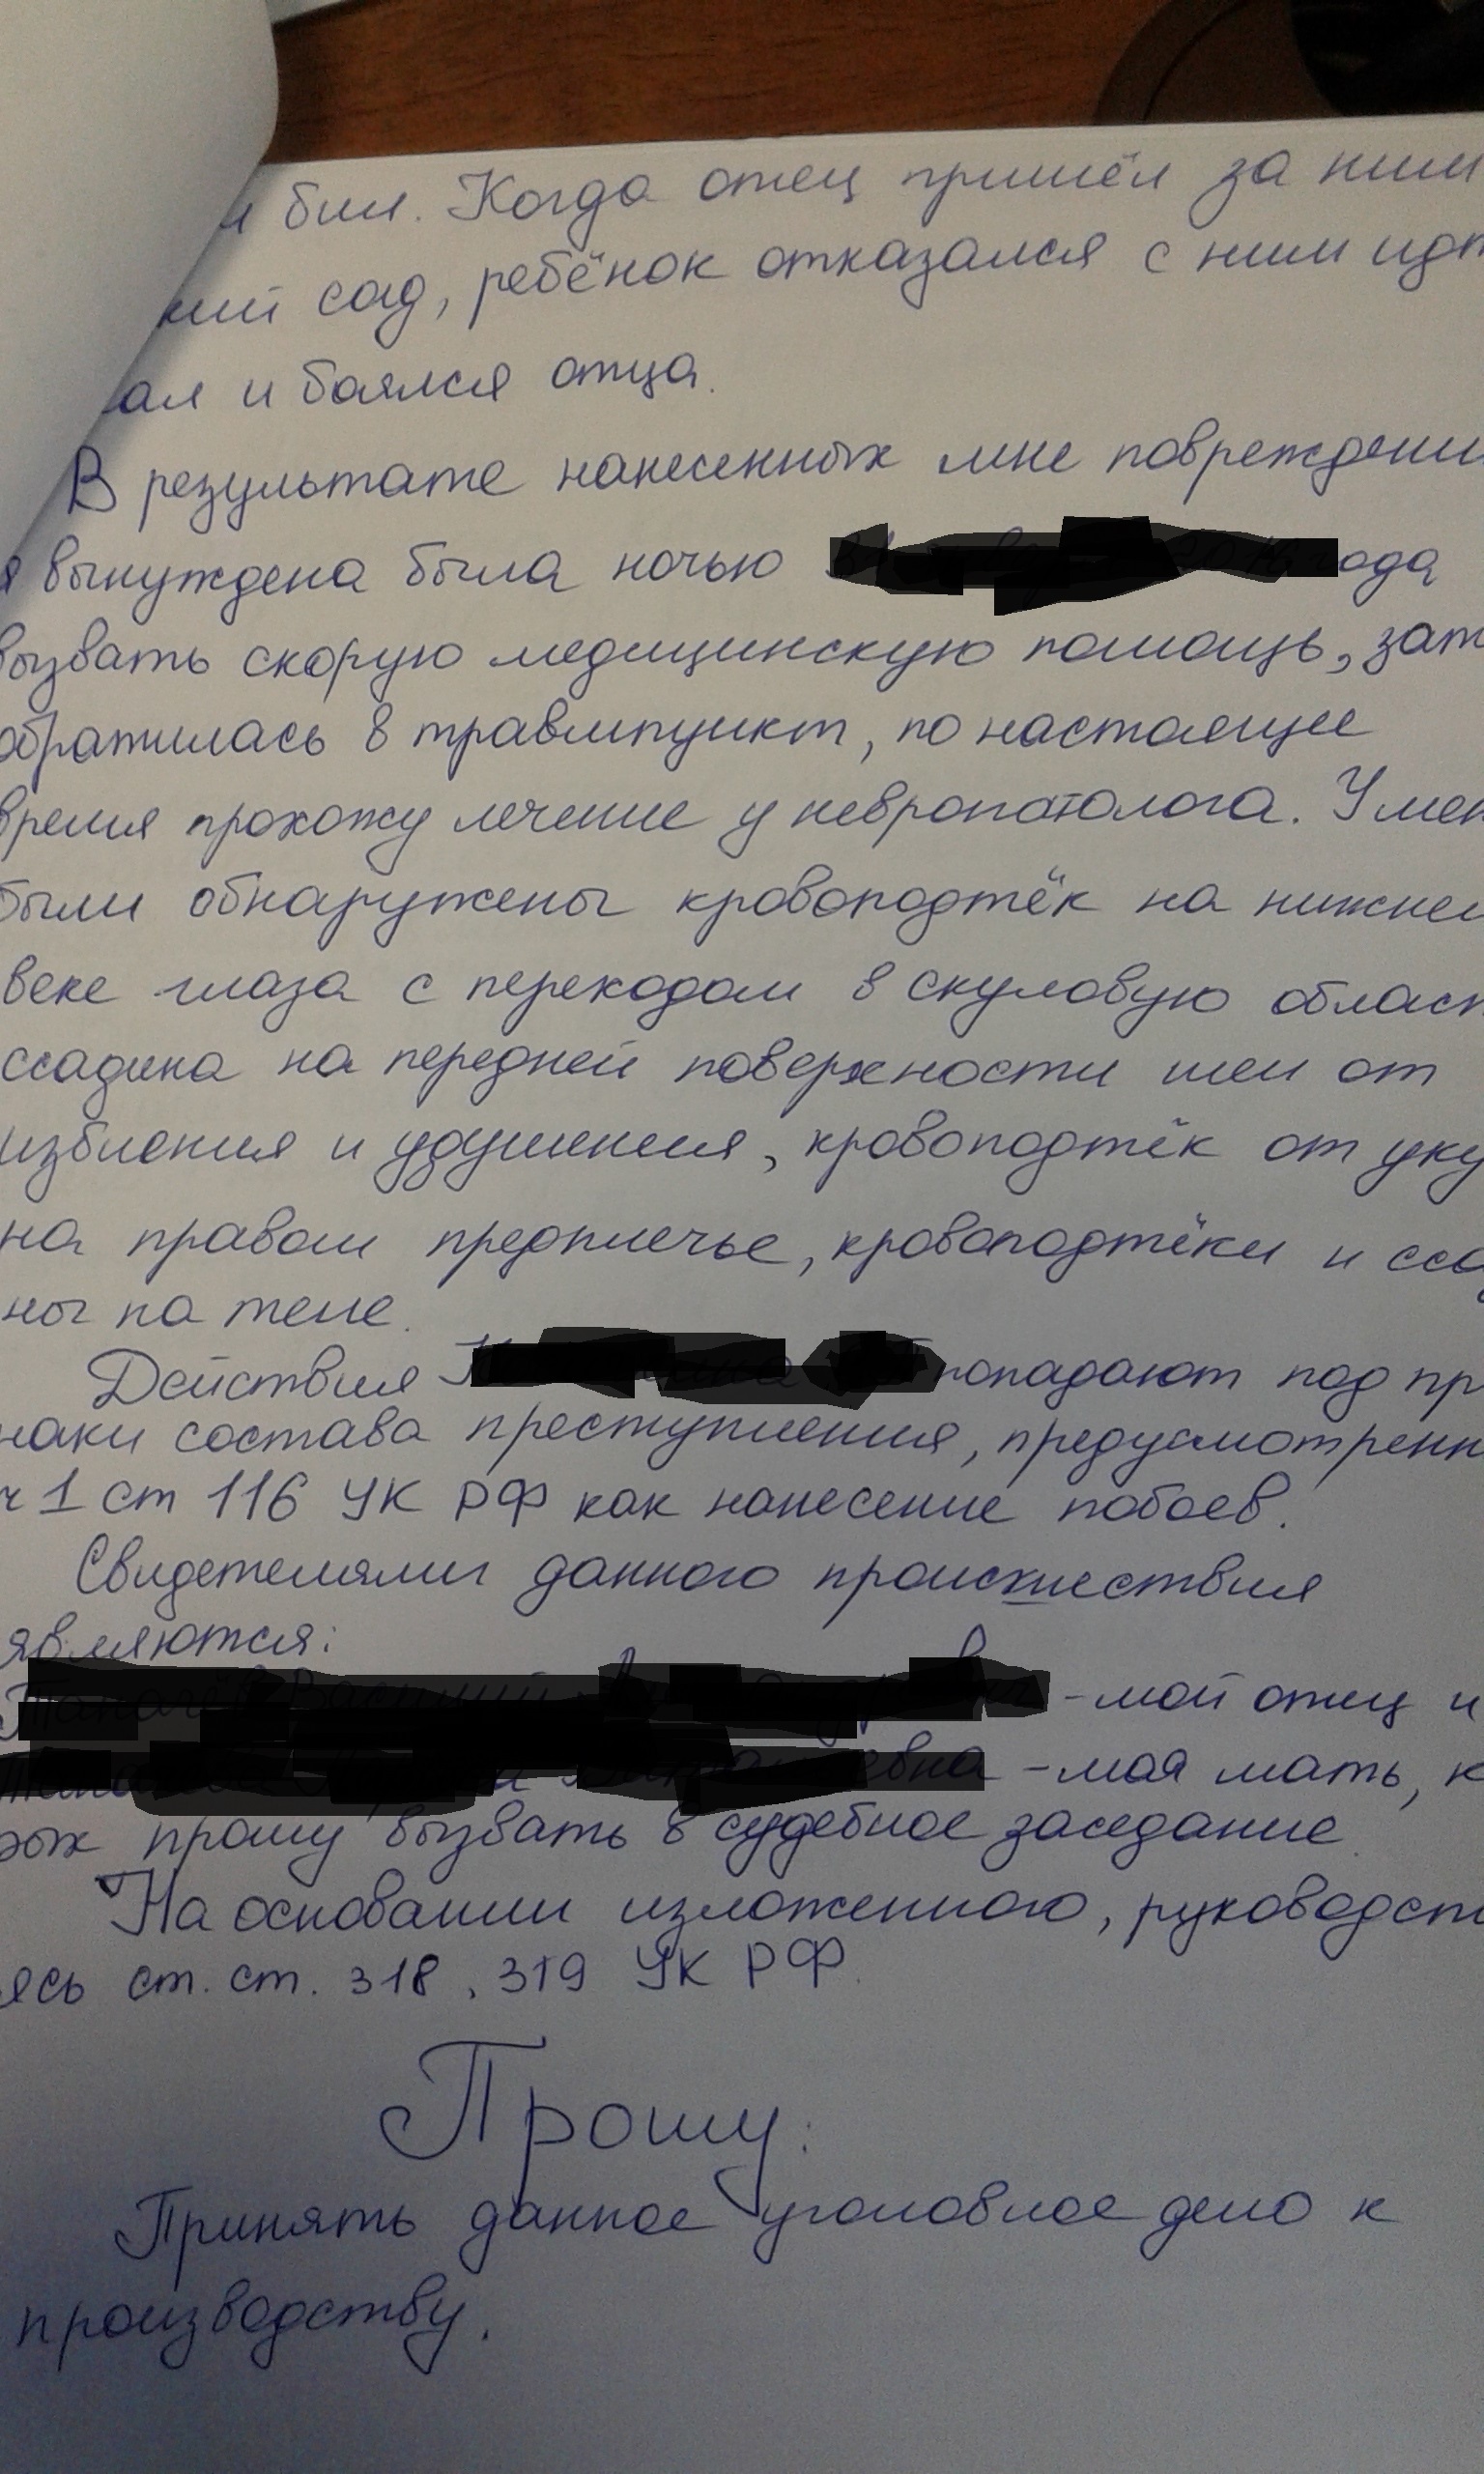 и бил. Когда отец пришёл за ним
кий сад, ребёнок отказался с ним идт
ал и боялся отца.
В результате нанесенных мне повреждени
я вынуждена была ночью года
вызвать скорую медицинскую помощь, зат
обратилась в травмпункт, по настоящее
время прохожу лечение у невропатолога. У мен
были обнаружены кровоподтёк на нижнем
веке глаза с переходом в скуловую област
ссадина на передней поверхности шеи от
избиения и удушения, кровоподтёк от уку
на правом предплечье, кровоподтёки и сса
ны на теле.
Действия попадают под пр
наки состава преступления, предусмотренн
ч 1 ст 116 УК РФ как нанесение побоев.
Свидетелями данного происшествия
являются:
-мой отец и
-моя мать, к
рых прошу вызвать в судебное заседание.
На основании изложенного, руководст
ясь ст. ст. 318, 319 УК РФ.
Прошу:
Принять данное уголовное дело к
производству.